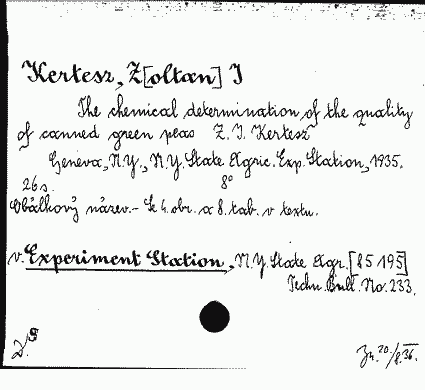 Kertesz, Z[oltan] I
The chemical determination of the quality
of canned green peas Z. I. Kertesz
Geneva, N.Y., N.Y. State Agric. Exp. Station, 1935.
26 s. 8°
Obálkový název. - Se 4 obr. a 8 tab. v textu.
v. Experiment Station, N.Y. State Agr. [85 195]
Techn. Bull. No. 233.